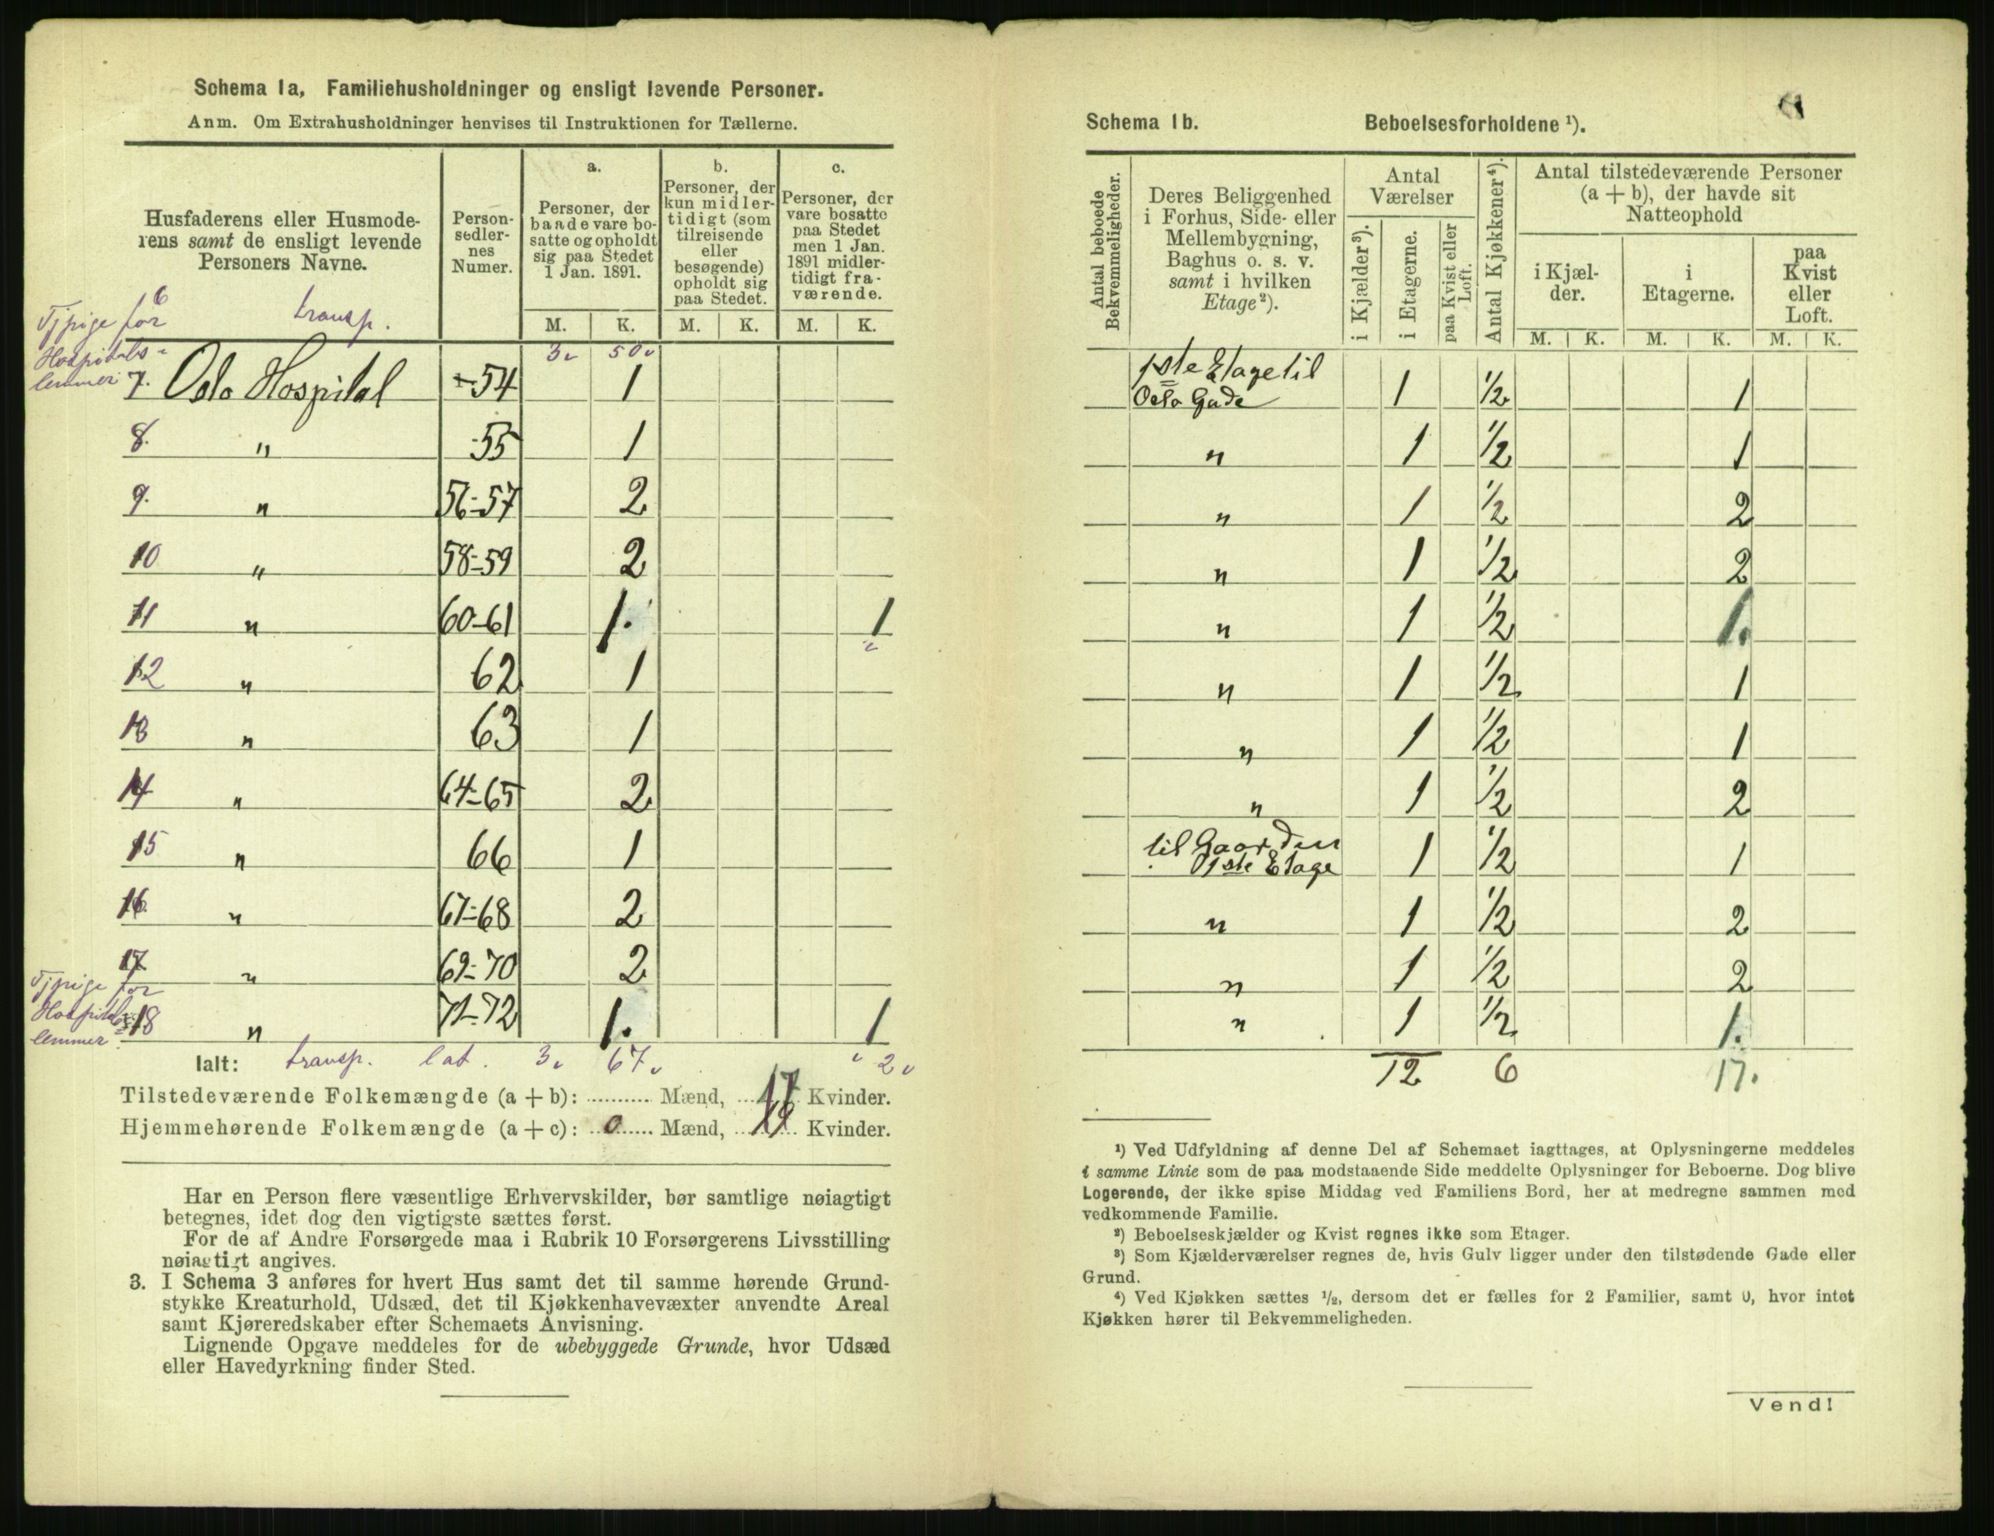 Schema 1a, Familiehusholdninger og ensligt levende Personer.
Anm. Om Extrahusholdninger henvises til Instruktionen for Tællerne.
Husfaderens eller Husmode-
rens samt de ensligt levende
Personers Navne.
Person-
sedler-
nes
Numer.
a.
Personer, der
baade vare bo-
satte og opholdt
sig paa Stedet
1 Jan. 1891.
b.
Personer, der
kun midler-
tidigt (som
tilreisende
eller
besøgende)
opholdt sig
paa Stedet.
c.
Personer, der
vare bosatte
paa Stedet
men 1 Jan.
1891 midler-
tidigt fra-
værende.
M. K. M. K. M. K.
6 transp. 3 50
Tjpige for
Hospitals-
lemmer
7. Oslo Hospital 54 1
8. " 55 1
9. " 56-57 2
10 " 58-59 2
11 " 60-61 1. 1
12 " 62 1
13 " 63 1
14 " 64-65 2
15 " 66 1
16 " 67-68 2
17 " 69-70 2
Tjpige for
Hospitals
lemmer
18 " 71-72 1. 1
Ialt: transp. lat. 3 67 2
Tilstedeværende Folkemængde (a + b): Mænd, 17 Kvinder.
Hjemmehørende Folkemængde (a + c): 0 Mænd, 19 Kvinder.
Har en Person flere væsentlige Erhvervskilder, bør samtlige nøiagtigt
betegnes, idet dog den vigtigste sættes først.
For de af Andre Forsørgede maa i Rubrik 10 Forsørgerens Livsstilling
nøiagtigt angives.
3. I Schema 3 anføres for hvert Hus samt det til samme hørende Grund-
stykke Kreaturhold, Udsæd, det til Kjøkkenhavevæxter anvendte Areal
samt Kjøreredskaber efter Schemaets Anvisning.
Lignende Opgave meddeles for de ubebyggede Grunde, hvor Udsæd
eller Havedyrkning finder Sted.
Schema 1b. Beboelsesforholdene ¹).
Antal beboede
Bekvemmeligheder.
Deres Beliggenhed
i Forhus, Side- eller
Mellembygning,
Baghus o. s. v.
samt i hvilken
Etage²).
Antal
Værelser
i Kjælder³).
i Etagerne.
paa Kvist eller
Loft.
Antal Kjøkkener⁴).
Antal tilstedeværende Personer
(a + b), der havde sit
Natteophold
i Kjæl-
der.
i
Etagerne.
paa
Kvist
eller
Loft.
M. K. M. K. M. K.
1ste Etage til
Oslo Gade 1 1/2 1
" 1 1/2 1
" 1 1/2 2
" 1 1/2 2
" 1 1/2 1.
" 1 1/2 1
" 1 1/2 1
" 1 1/2 2
til Gaarden
1ste Etage 1 1/2 1
" 1 1/2 2
" 1 1/2 2
" 1 1/2 1.
12 6 17.
¹) Ved Udfyldning af denne Del af Schemaet iagttages, at Oplysningerne meddeles
i samme Linie som de paa modstaaende Side meddelte Oplysninger for Beboerne. Dog blive
Logerende, der ikke spise Middag ved Familiens Bord, her at medregne sammen med
vedkommende Familie.
²) Beboelseskjælder og Kvist regnes ikke som Etager.
³) Som Kjælderværelser regnes de, hvis Gulv ligger under den tilstødende Gade eller
Grund.
⁴) Ved Kjøkken sættes ¹/₂, dersom det er fælles for 2 Familier, samt 0, hvor intet
Kjøkken hører til Bekvemmeligheden.
Vend!